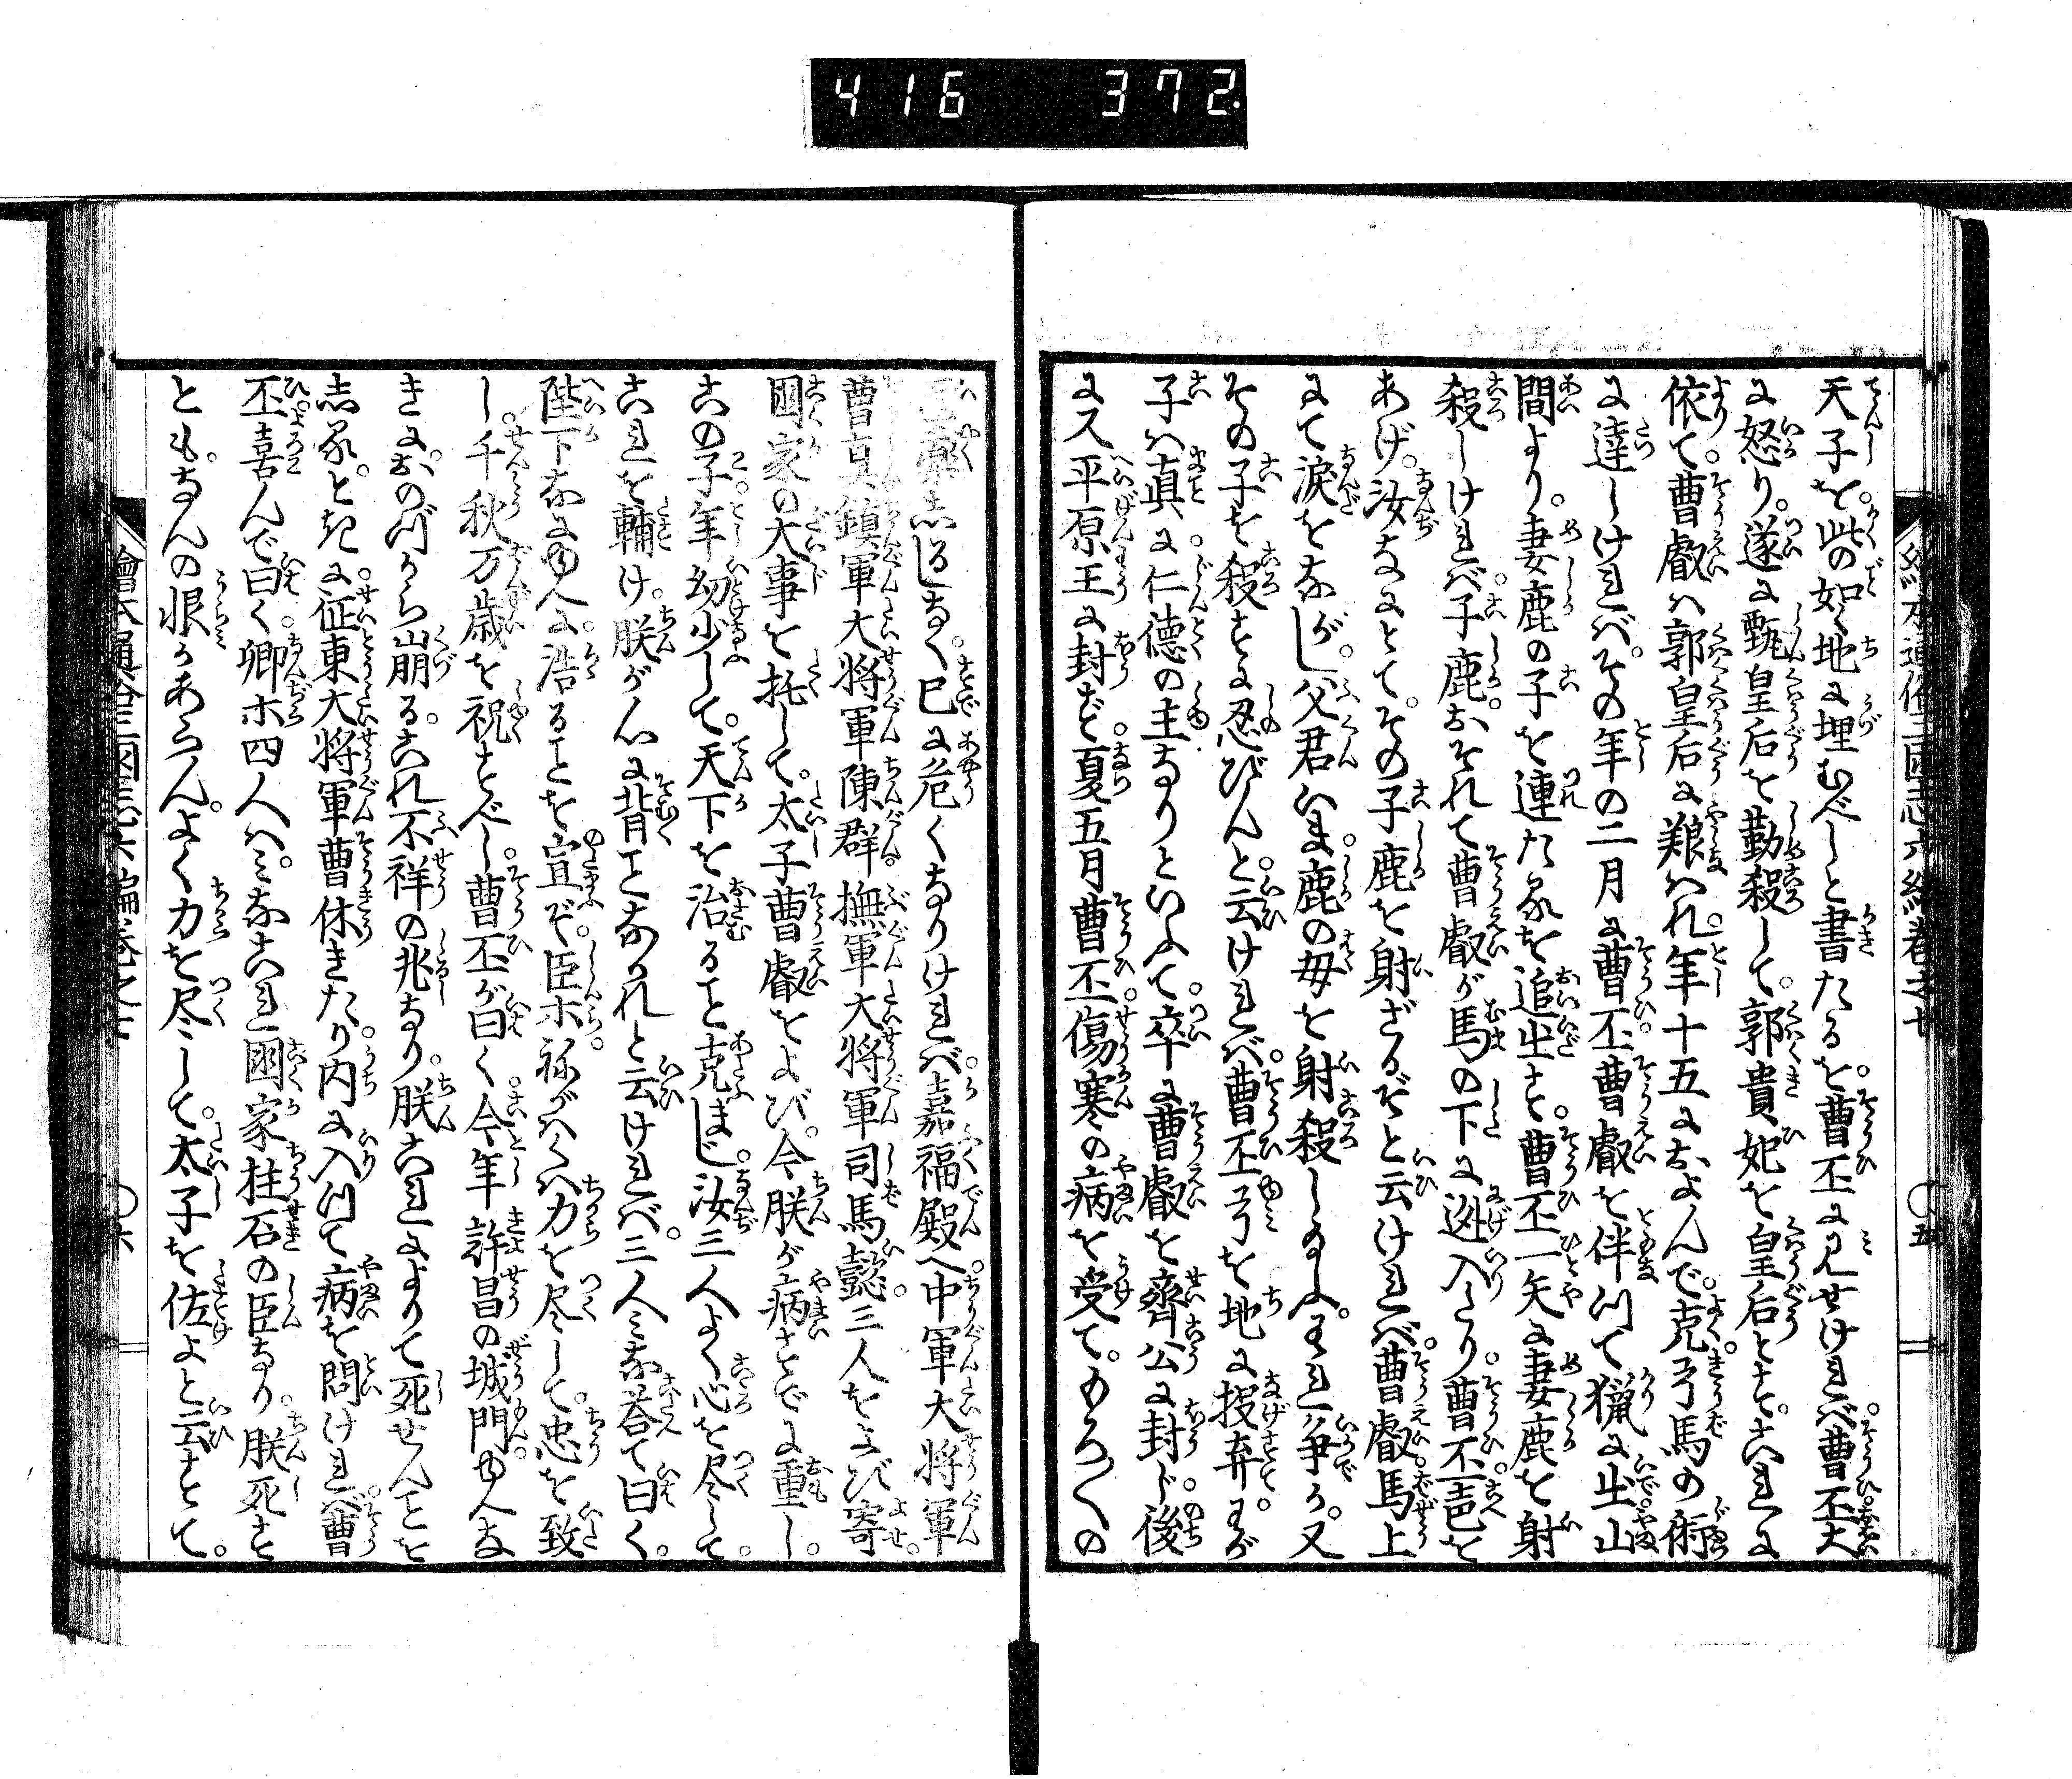 416 372
繪本通俗三國志六編卷之七 〇五
天子を。此の如く地に埋むべしと書たるを。曹丕に見せければ。曹丕大
に怒り。遂に甄皇后を勒殺して。郭貴妃を皇后とす。これに
依て。曹叡ハ郭皇后に養ハれ。年十五におよんで。克弓馬の術
に達しければ。その年の二月に曹丕。曹叡を伴つて猟に出。山
間より。妻鹿の子を連たるを追出す。曹丕一矢に妻鹿を射
殺しければ。子鹿。おそれて曹叡が馬の下に迯入たり。曹丕。声を
あげ。汝なにとて。その子鹿を射ざるぞと云ければ。曹叡。馬上
にて涙をながし。父君いま。鹿の母を射殺し給ふ。それ争か。又
その子を殺すに忍びんと。云ければ。曹丕弓を地に投弃。わが
子ハ真に。仁徳の主なりといふて。卒に曹叡を齊公に封じ。後
に又平原王に封ず。夏五月曹丕。傷寒の病を受て。もろ〱の
医薬しるしなく。已に危くなりければ。嘉福殿へ。中軍大将軍
曹真。鎮軍大将軍陳群。撫軍大将軍司馬懿。三人をよび寄。
國家の大事を托して。太子曹叡をよび。今朕が病すでに重し。
この子年幼少して。天下を治ること克まじ。汝三人よく心を尽して。
これを輔け。朕が心に背ことなかれと云ければ。三人みな荅て曰く。
陛下なにゆへに。浩ることを宣ぞ。臣ホ。ねがハくハ力を尽して。忠を致
し。千秋万歳を祝すべし。曹丕が曰く。今年許昌の城門。ゆへな
きに。おのづから崩る。これ不祥の兆なり。朕これによりて死せんことを
しると。とき に。征東大将軍曹休きたり。内に入つて病を問ければ。曹
丕喜んで曰く。卿ホ四人ハ。みなこれ國家柱石の臣なり。朕死す
とも。なんの恨かあらん。よく力を尽して。太子を佐よと云すとて。
繪本通俗三國志六編卷之七 〇六